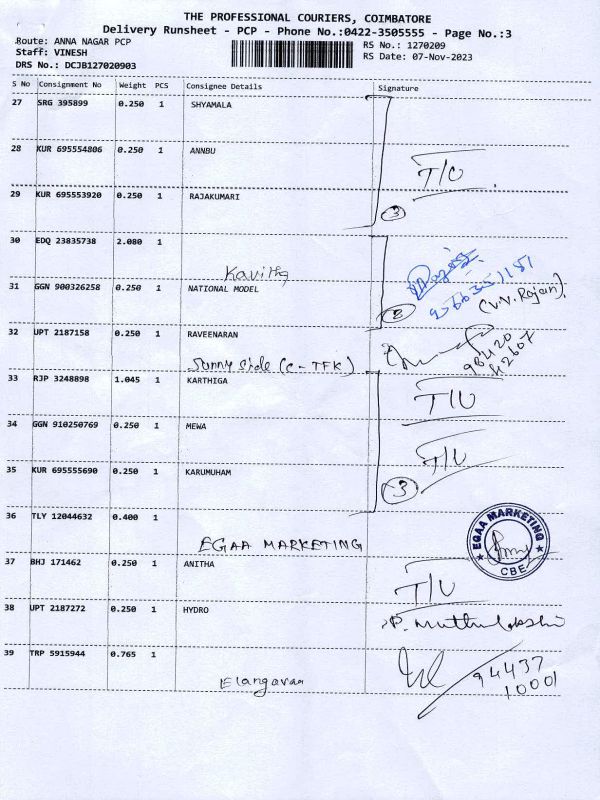 THE PROFESSIONAL COURIERS, COIMBATORE
Delivery Runsheet - PCP - Phone No.:0422-3505555 - Page No.:3
Route: ANNA NAGAR PCP RS No.: 1270209
Staff: VINESH RS Date: 07-Nov-2023
DRS No.: DCJB127020903
S No Consignment No Weight PCS Consignee Details Signature
27 SRG 395899 0.250 1 SHYAMALA
28 KUR 695554806 0.250 1 ANNBU T/U
29 KUR 695553920 0.250 1 RAJAKUMARI 3
30 EDQ 23835738 2.080 1
Kavitha
31 GGN 900326258 0.250 1 NATIONAL MODEL (V.V. Rajan)
32 UPT 2187158 0.250 1 RAVEENARAN 98420
Sunny Side (C - TFK) 42607
33 RJP 3248898 1.045 1 KARTHIGA T/U
34 GGN 910250769 0.250 1 MEWA T/U
35 KUR 695555690 0.250 1 KARUMUHAM 3
36 TLY 12044632 0.400 1
EGAA MARKETING EGAA MARKETING CBE
37 BHJ 171462 0.250 1 ANITHA T/U
38 UPT 2187272 0.250 1 HYDRO P. Muthulakshmi
39 TRP 5915944 0.765 1 94437
10001